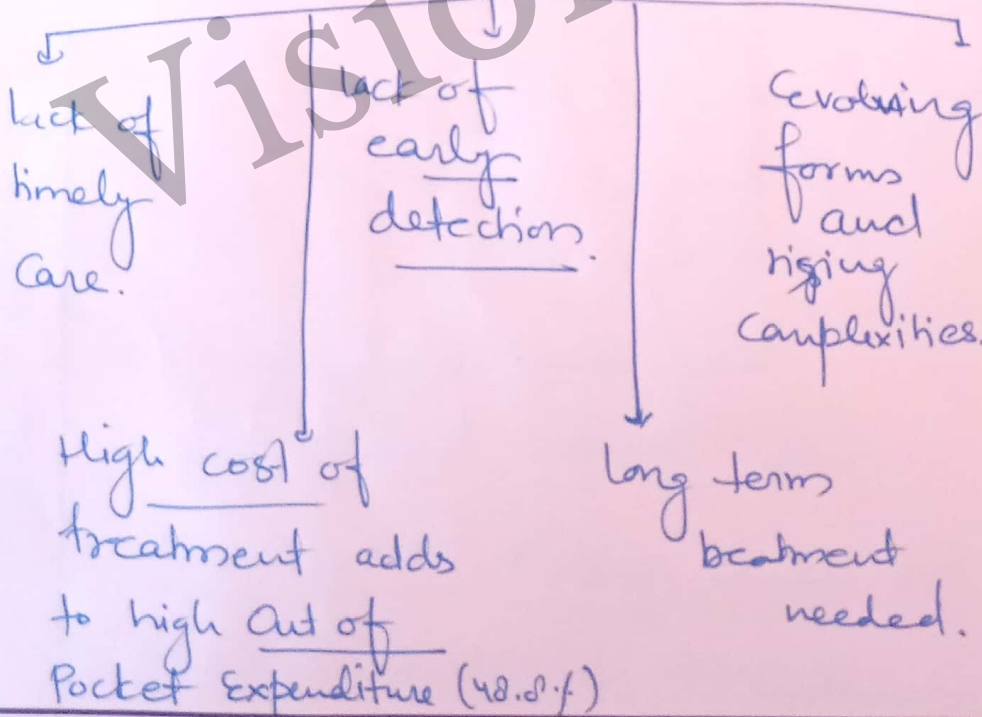 Vision
lack of
timely
Care.
lack of
early
detection.
Evolving
forms
and
rising
Complexities.
High cost of
treatment adds
to high Out of
Pocket Expenditure (48.8%)
long term
treatment
needed.